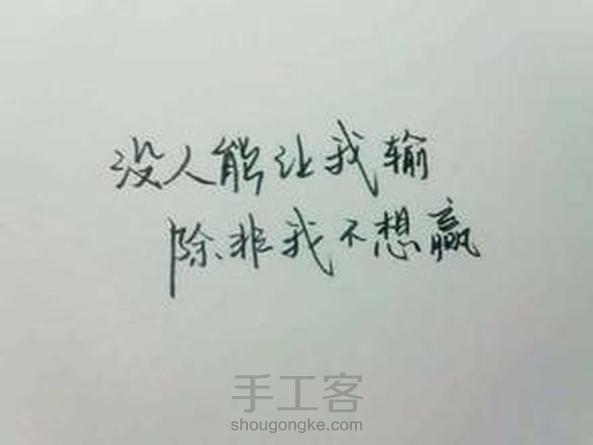 没人能让我输
除非我不想赢
手工客
shougongke.com